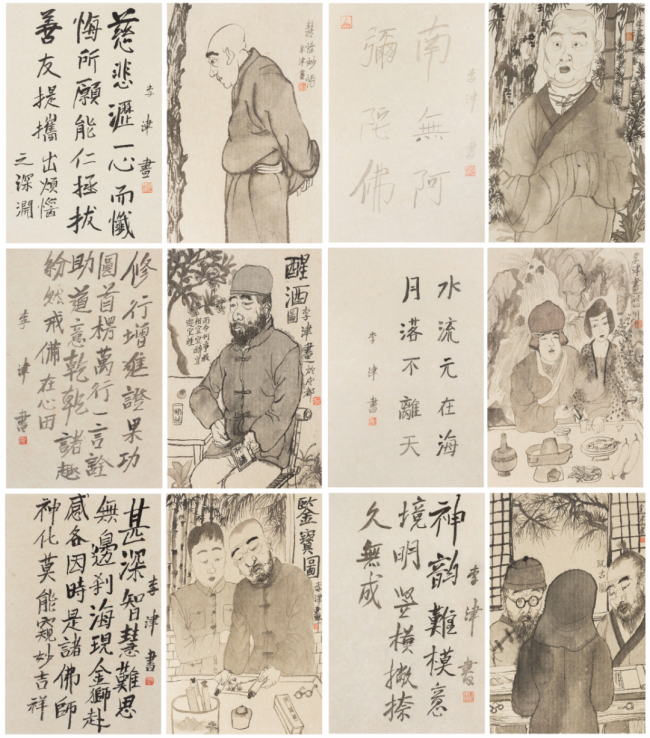 李津書
慈悲瀝一心而懺
悔所願能仁拯拔
善友提攜出煩惱
之深淵
李津書
南無阿
彌陀佛
修行增進證果功
圓首楞萬行一言詮
助道意乾乾諸趣
紛然戒備在心田
李津書
醒酒圖
李津畫於成都
水流元在海
月落不離天
李津書
李津書
甚深智慧難思
無邊刹海現金獅赴
感各因時是諸佛師
神化莫能窺妙吉祥
鑒寶圖
李津畫
李津書
神韻難模意
境明豎橫撇捺
久無成